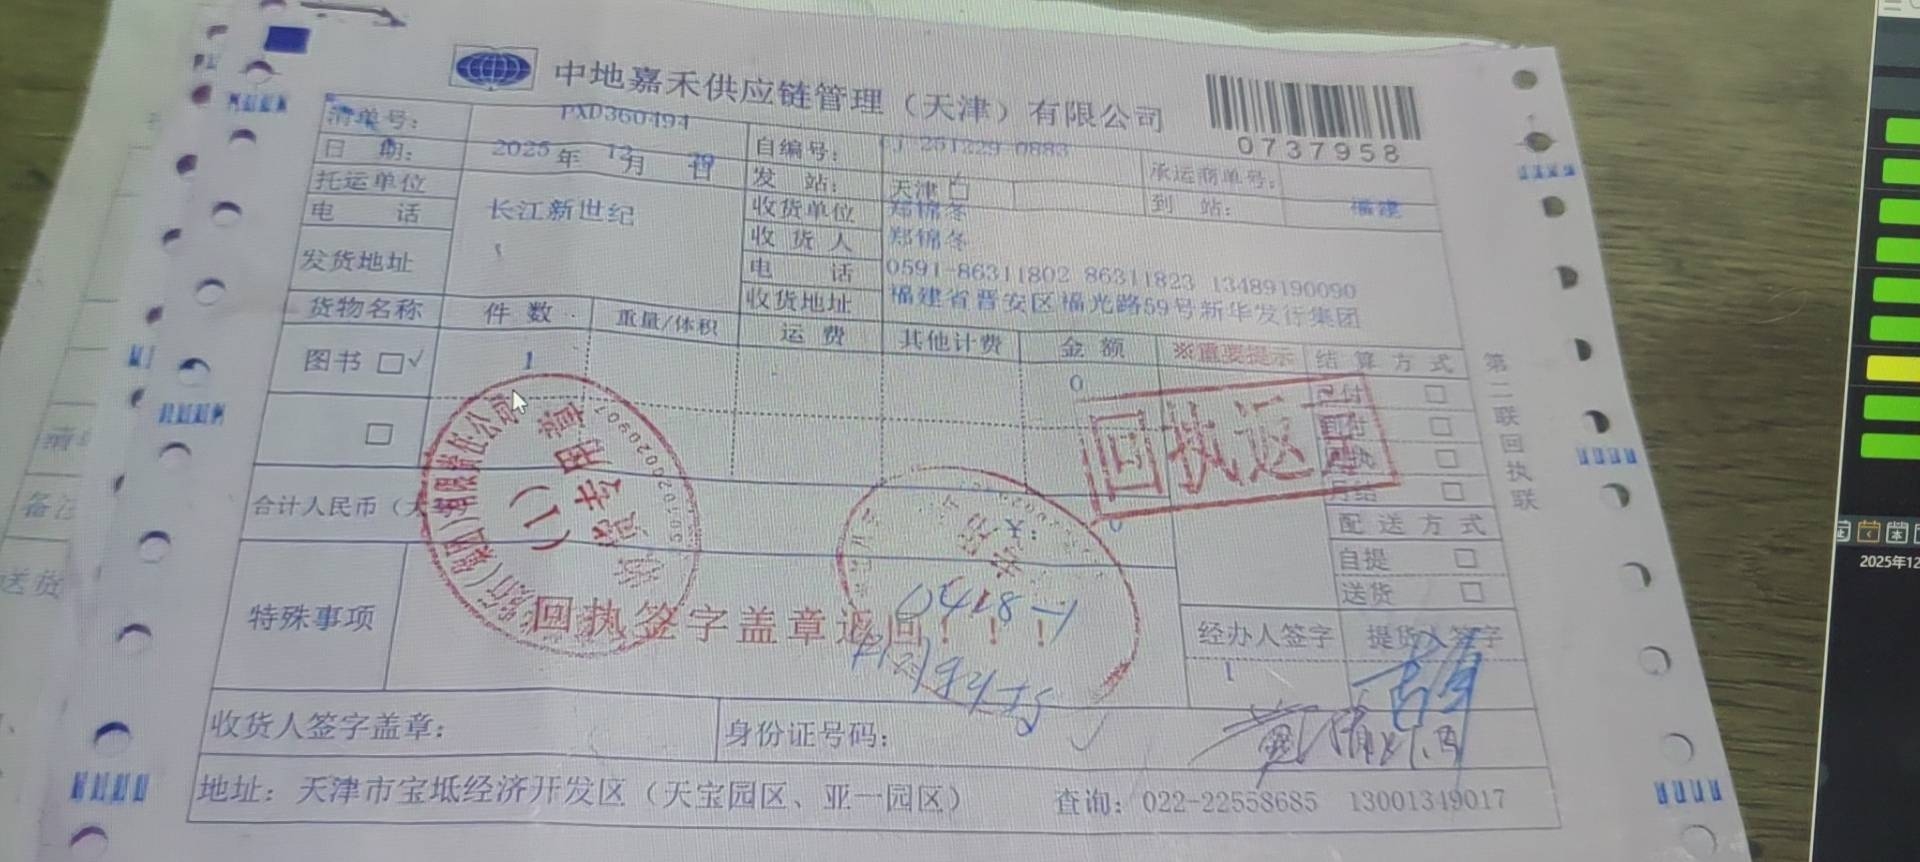 中地嘉禾供应链管理（天津）有限公司
0737958
清单号： PXD360494
自编号： 251229 0883
承运商单号：
日 期： 2025 年 12 月 日
发 站： 天津 □
到 站： 福建
托运单位 长江新世纪
收货单位 郑锦冬
电 话
收 货 人 郑锦冬
发货地址
电 话 0591-86311802 86311823 13489190090
收货地址 福建省晋安区福光路59号新华发行集团
货物名称 件 数 重量/体积 运 费 其他计费 金 额 ※重要提示 结 算 方 式
图书 □√ 1 0
已付 □
到付 □
□
月结 □
回执返回
第二联回执联
合计人民币（大
0
配 送 方 式
自提 □
送货 □
（1）
专用章
特殊事项
回执签字盖章返回！！！
经办人签字 提货人签字
1
收货人签字盖章：
身份证号码：
地址：天津市宝坻经济开发区（天宝园区、亚一园区） 查询：022-22558685 13001349017
备注
送货
2025年12